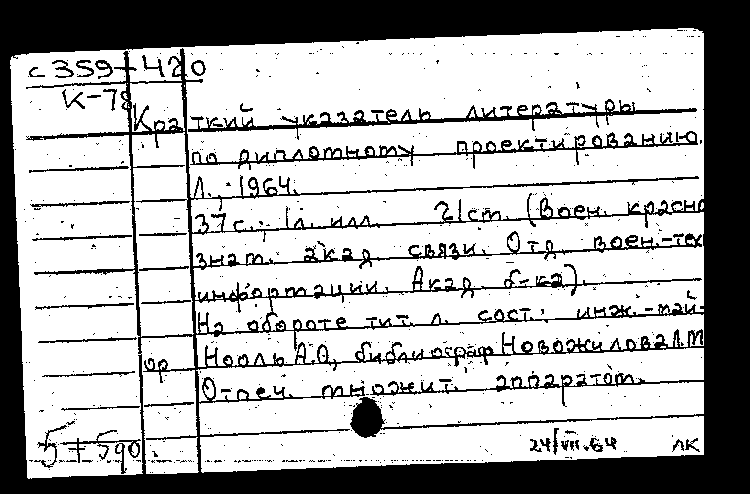 с359-420
К-78
Краткий указатель литературы
по дипломному проектированию.
Л., 1964.
37 с.; 1л. илл. 21 см. (Воен. красно
знам. акад. связи. Отд. воен.-тех
информации. Акад. б-ка).
На обороте тит. л. сост.: инж.-май-
ор Нооль А.О, библиограф Новожилова Л.М
Отпеч. множит. аппаратом.
24/VII.64 ЛК